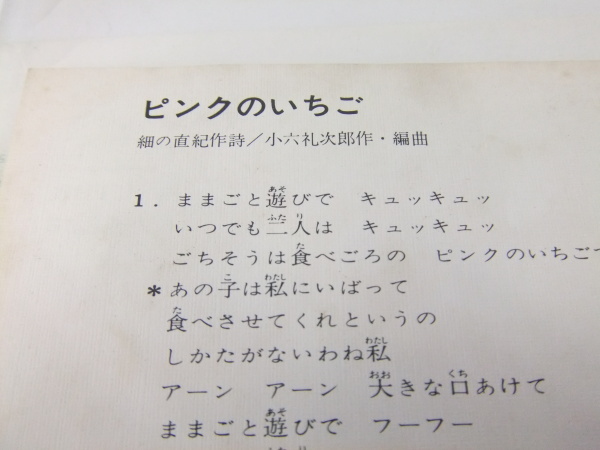 ピンクのいちご
細の直紀作詩/小六礼次郎作・編曲
1. ままごと遊びで キュッキュッ
いつでも二人は キュッキュッ
ごちそうは食べごろの ピンクのいちご
*あの子は私にいばって
食べさせてくれというの
しかたがないわね私
アーン アーン 大きな口あけて
ままごと遊びで フーフー